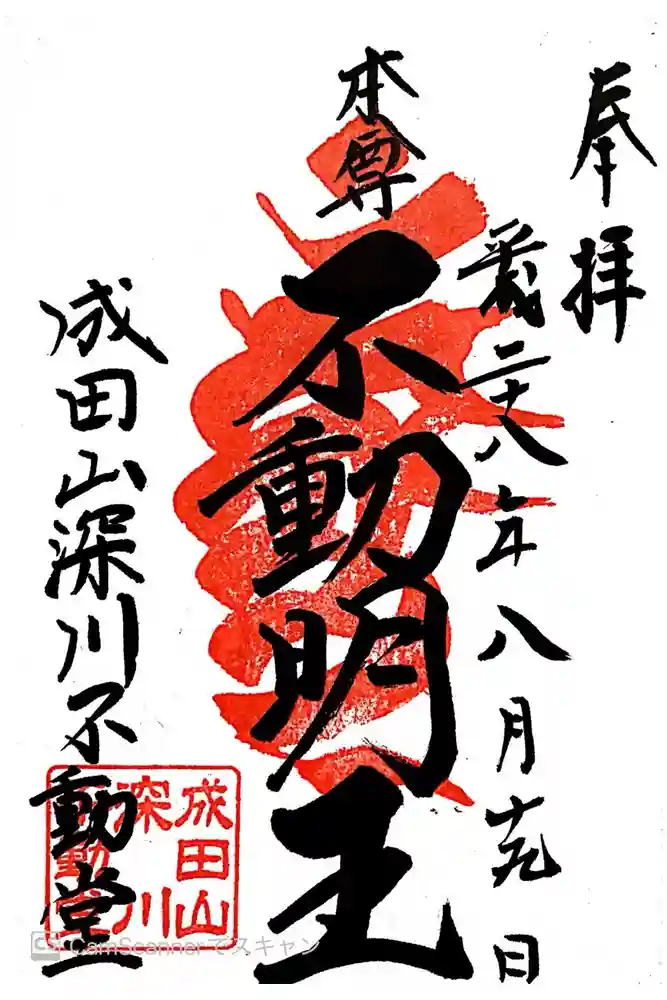 奉拝
平成二十八年八月十九日
本尊
不動明王
成田山深川不動堂
成田山
深川
CS CamScanner でスキャン